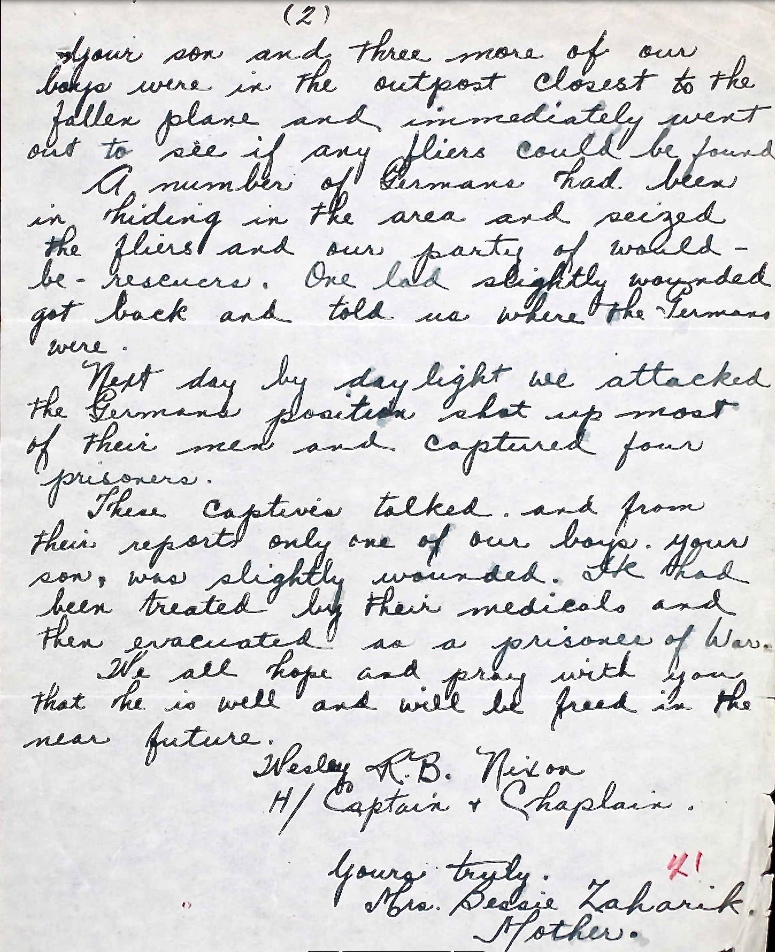 (2)
Your son and three more of our
boys were in the outpost closest to the
fallen plane and immediately went
out to see if any fliers could be found
A number of Germans had been
in hiding in the area and seized
the fliers and our party of would-
be-rescuers. One lad slightly wounded
got back and told us where the Germans
were.
Next day by daylight we attacked
the Germans position shot up most
of their men and captured four
prisoners.
These captives talked. and from
their reports only one of our boys. your
son, was slightly wounded. He had
been treated by their medicals and
then evacuated as a prisoner of War.
We all hope and pray with you
that he is well and will be freed in the
near future.
Wesley R.B. Nixon
H/Captain & Chaplain.
Yours truly.
Mrs. Bessie Zaharik.
Mother.